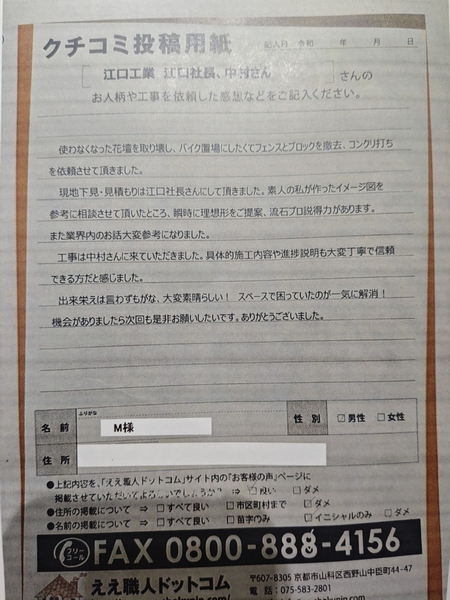 クチコミ投稿用紙
記入日 令和 年 月 日
江口工業 江口社長、中村さん さんの
お人柄や工事を依頼した感想などをご記入ください。
使わなくなった花壇を取り壊し、バイク置場にしたくてフェンスとブロックを撤去、コンクリ打ち
を依頼させて頂きました。
現地下見・見積もりは江口社長さんにして頂きました。素人の私が作ったイメージ図を
参考に相談させて頂いたところ、瞬時に理想形をご提案、流石プロ説得力があります。
また業界内のお話大変参考になりました。
工事は中村さんに来ていただきました。具体的施工内容や進捗説明も大変丁寧で信頼
できる方だと感じました。
出来栄えは言わずもがな、大変素晴らしい! スペースで困っていたのが一気に解消!
機会がありましたら次回も是非お願いしたいです。ありがとうございました。
ふりがな
名前 M様 性別 ☑男性 □女性
住所
●上記内容を、「ええ職人ドットコム」サイト内の「お客様の声」ページに
掲載させていただいてよろしいでしょうか? ⇒ □良い □ダメ
●住所の掲載について ⇒ □すべて良い □市区町村まで ☑ダメ
●名前の掲載について ⇒ □すべて良い □苗字のみ ☑イニシャルのみ □ダメ
フリーコール FAX 0800-888-4156
ええ職人ドットコム
〒607-8305 京都市山科区西野山中臣町44-47
電話:075-583-2801